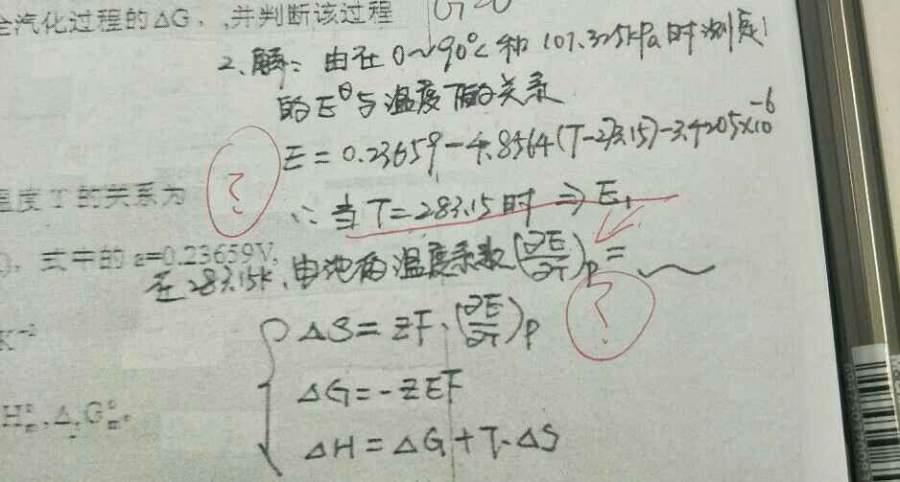 全汽化过程的ΔG,,并判断该过程
2、解:由在0~90℃和101.325kPa时测定
的E^θ与温度T的关系
E=0.23659-4.8564(T-273.15)-3.4205×10^-6
温度T的关系为
?
∴当T=283.15时⇒E₁
),式中的a=0.23659V,
在283.15K,电池的温度系数(∂E/∂T)p=
K⁻²
ΔS=zF·(∂E/∂T)p
?
ΔG=-zEF
H°m,ΔrG°m.
ΔH=ΔG+T·ΔS